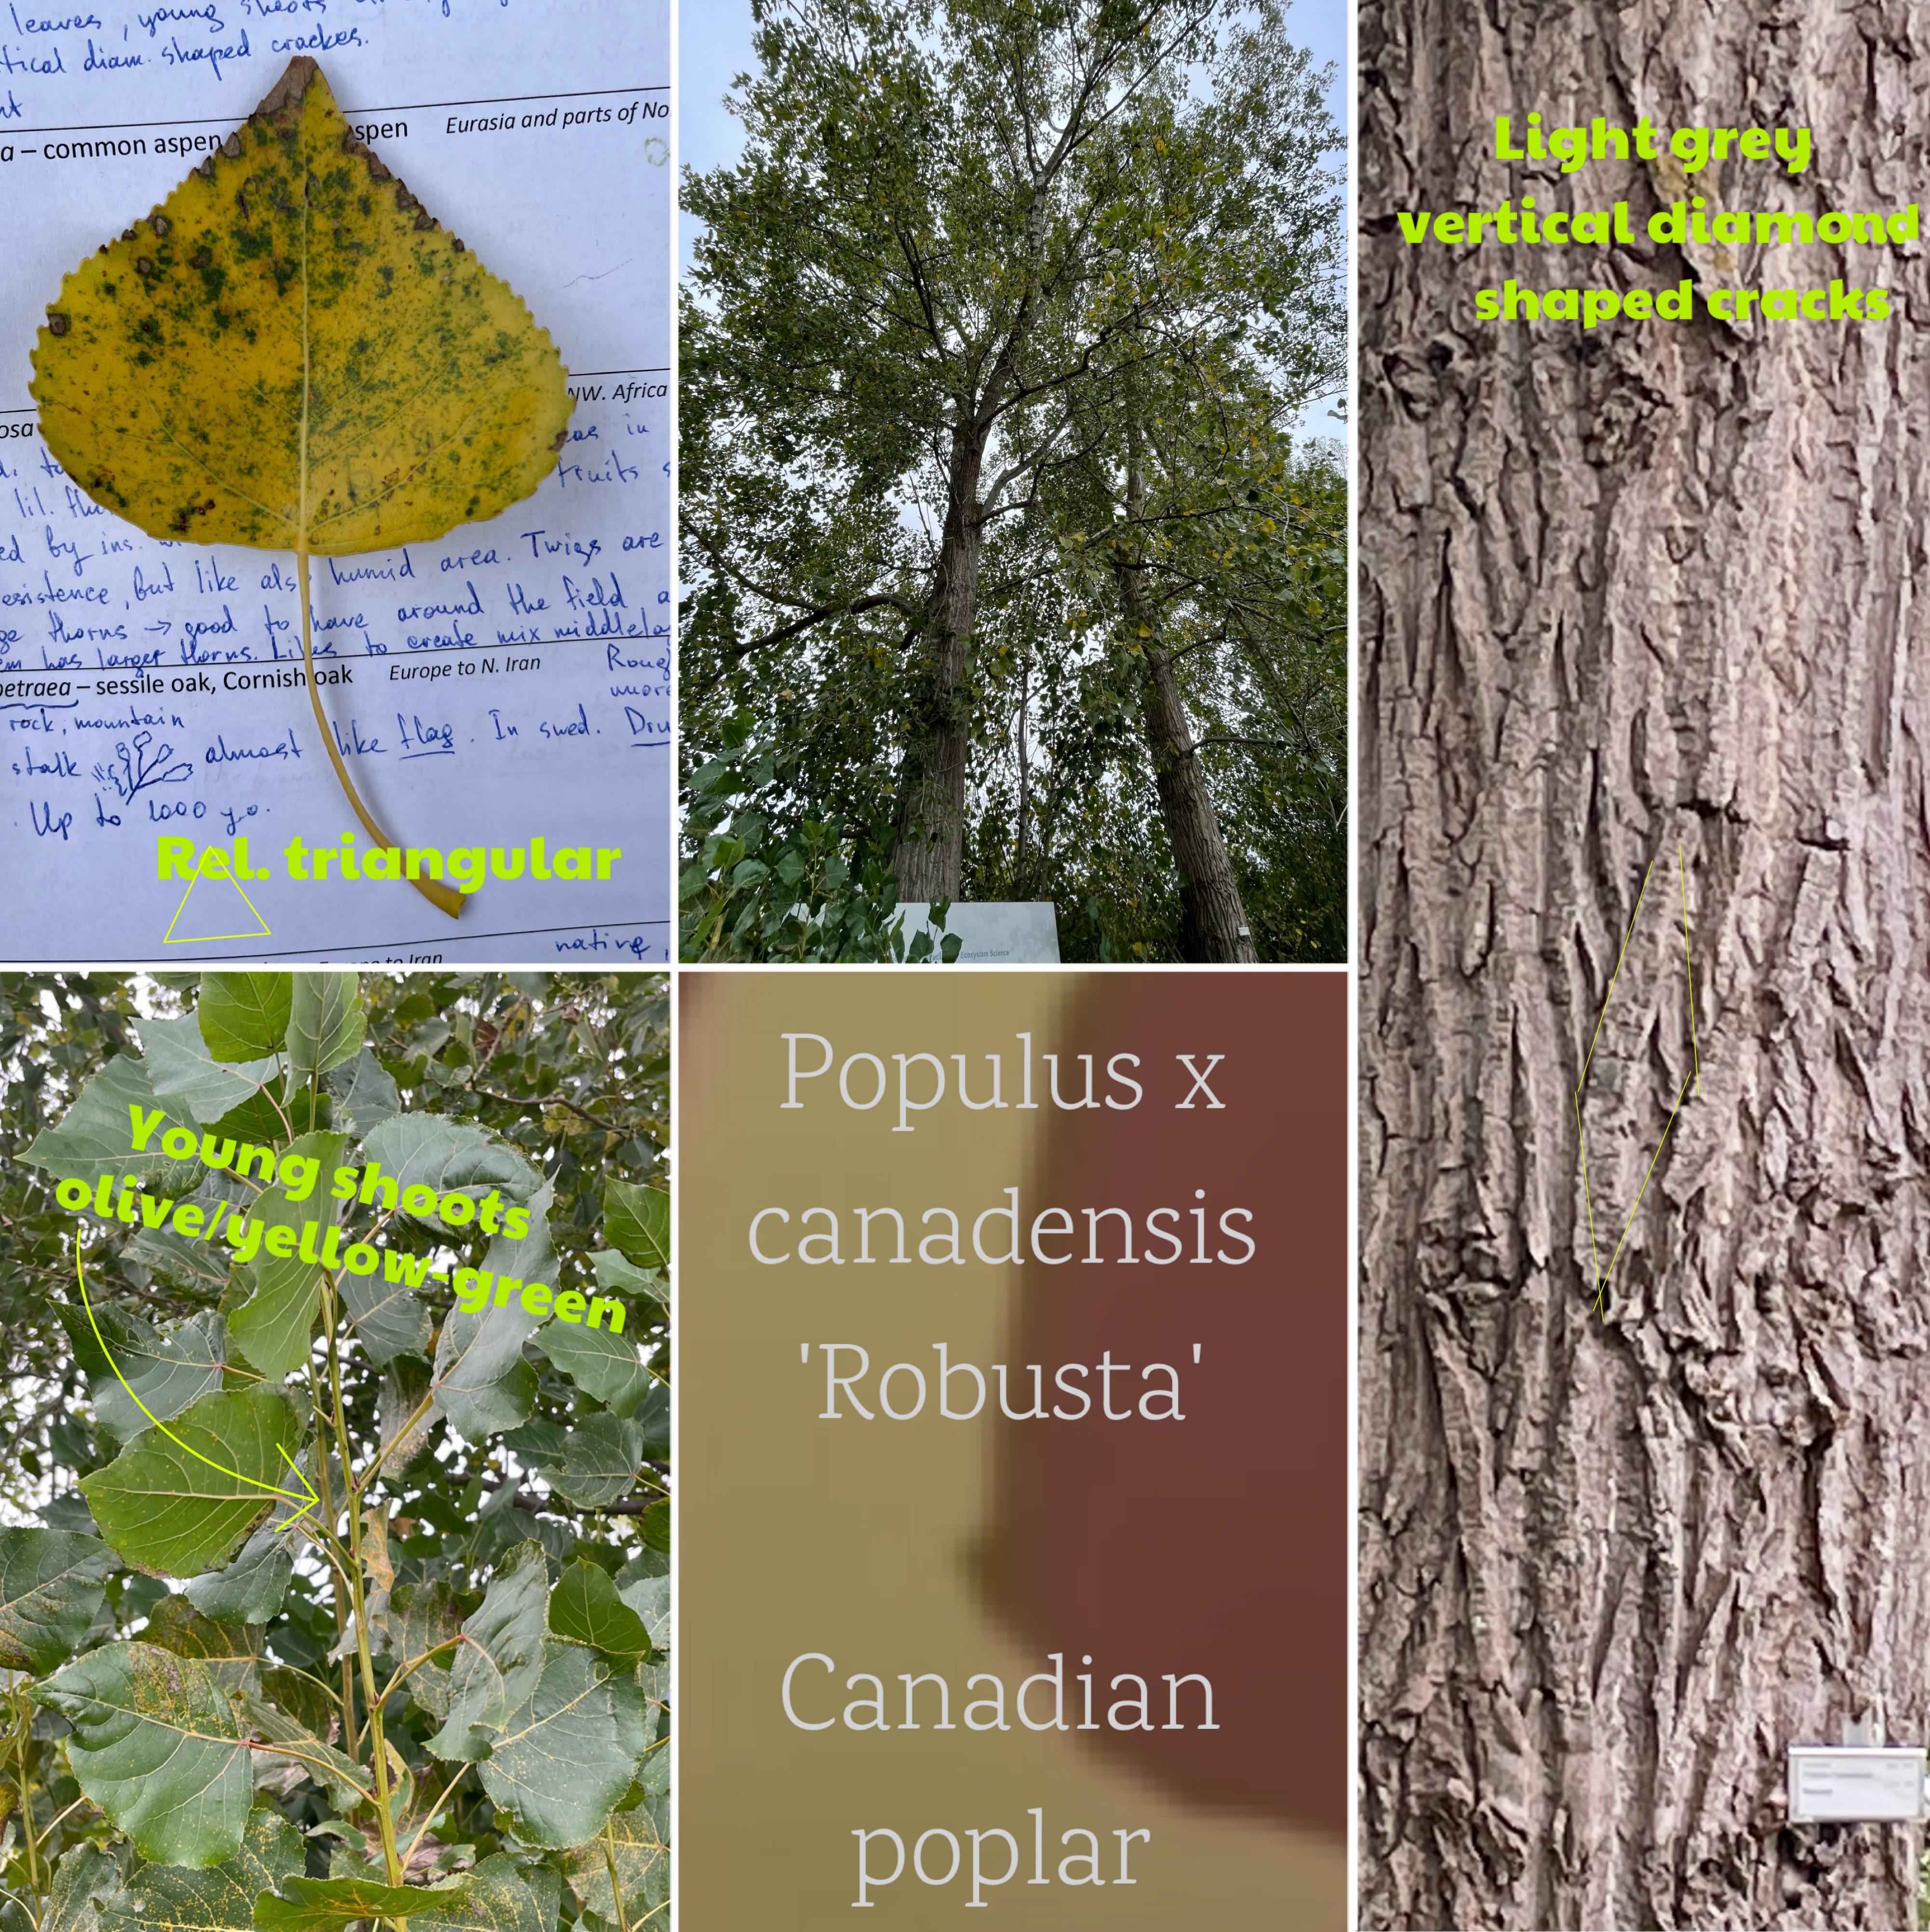 leaves, young shoots
tical diam. shaped crackes.
nt
a – common aspen spen Eurasia and parts of No
NW. Africa
osa
as in
fruits s
lil. 
ed by ins.
esistence, but like als humid area. Twigs are
ge thorns → good to have around the field a
em has larger thorns. Likes to create mix middle
petraea – sessile oak, Cornish oak Europe to N. Iran
Roug
more
rock, mountain
stalk almost like flag. In swed. Dru
Up to 1000 y.o.
Rel. triangular
native,
to Iran
Ecosystem Science
Light grey
vertical diamond
shaped cracks
Young shoots
olive/yellow-green
Populus x
canadensis
'Robusta'
Canadian
poplar